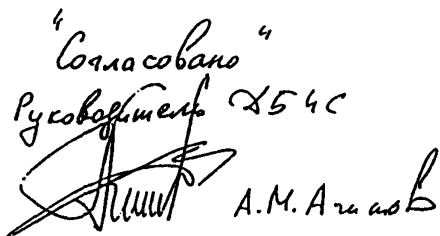 "Согласовано"
Руководитель ДБЧС
А.М. Агишев